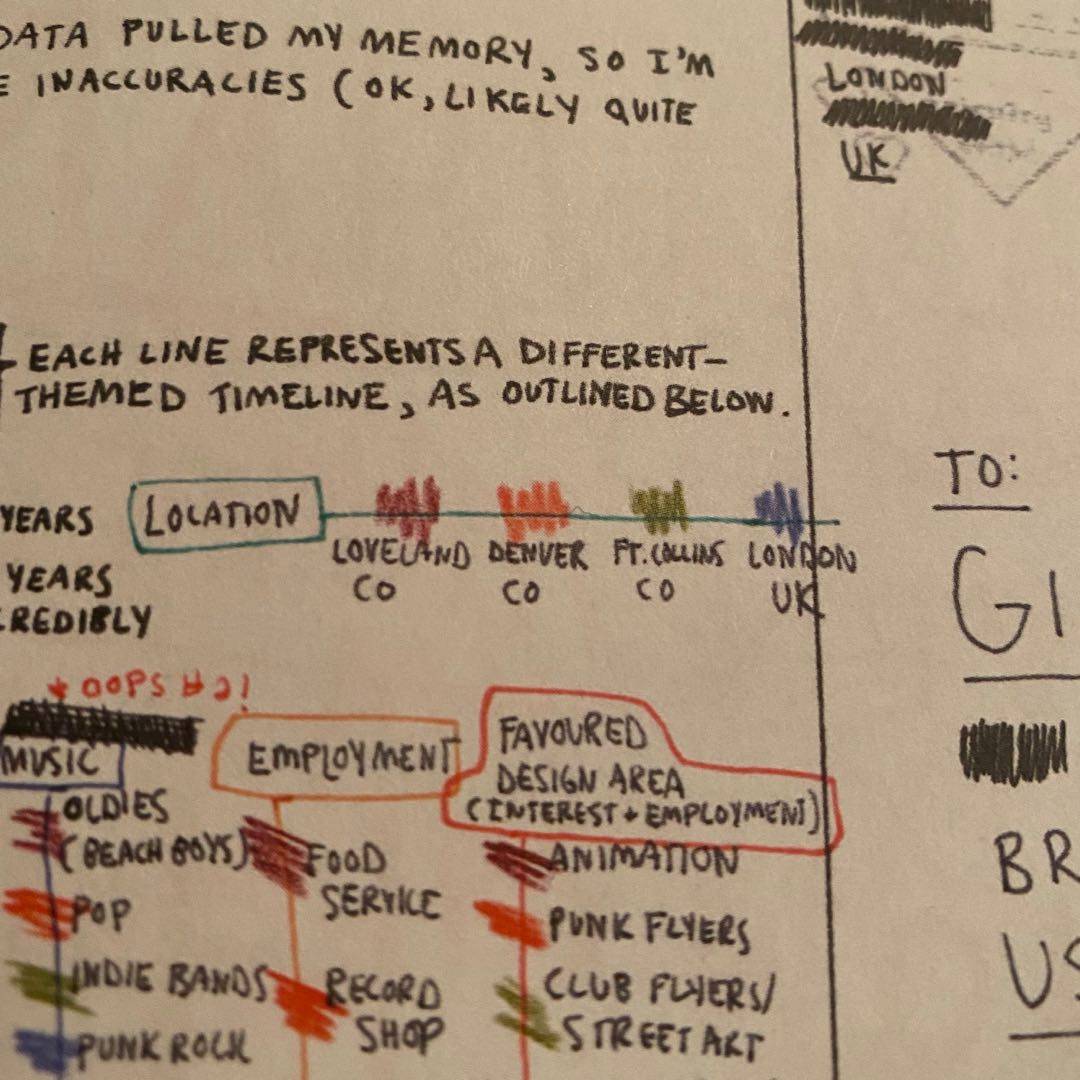 DATA PULLED MY MEMORY, SO I'M
INACCURACIES (OK, LIKELY QUITE
EACH LINE REPRESENTS A DIFFERENT-
THEMED TIMELINE, AS OUTLINED BELOW.
YEARS
YEARS
LOCATION
LOVELAND
CO
DENVER
CO
FT. COLLINS
CO
LONDON
UK
* OOPS #2!
MUSIC
OLDIES
(BEACH BOYS)
POP
INDIE BANDS
PUNK ROCK
EMPLOYMENT
FOOD
SERVICE
RECORD
SHOP
FAVOURED
DESIGN AREA
(INTEREST + EMPLOYMENT)
ANIMATION
PUNK FLYERS
CLUB FLYERS/
STREET ART
LONDON
UK
TO:
GI
BR
US